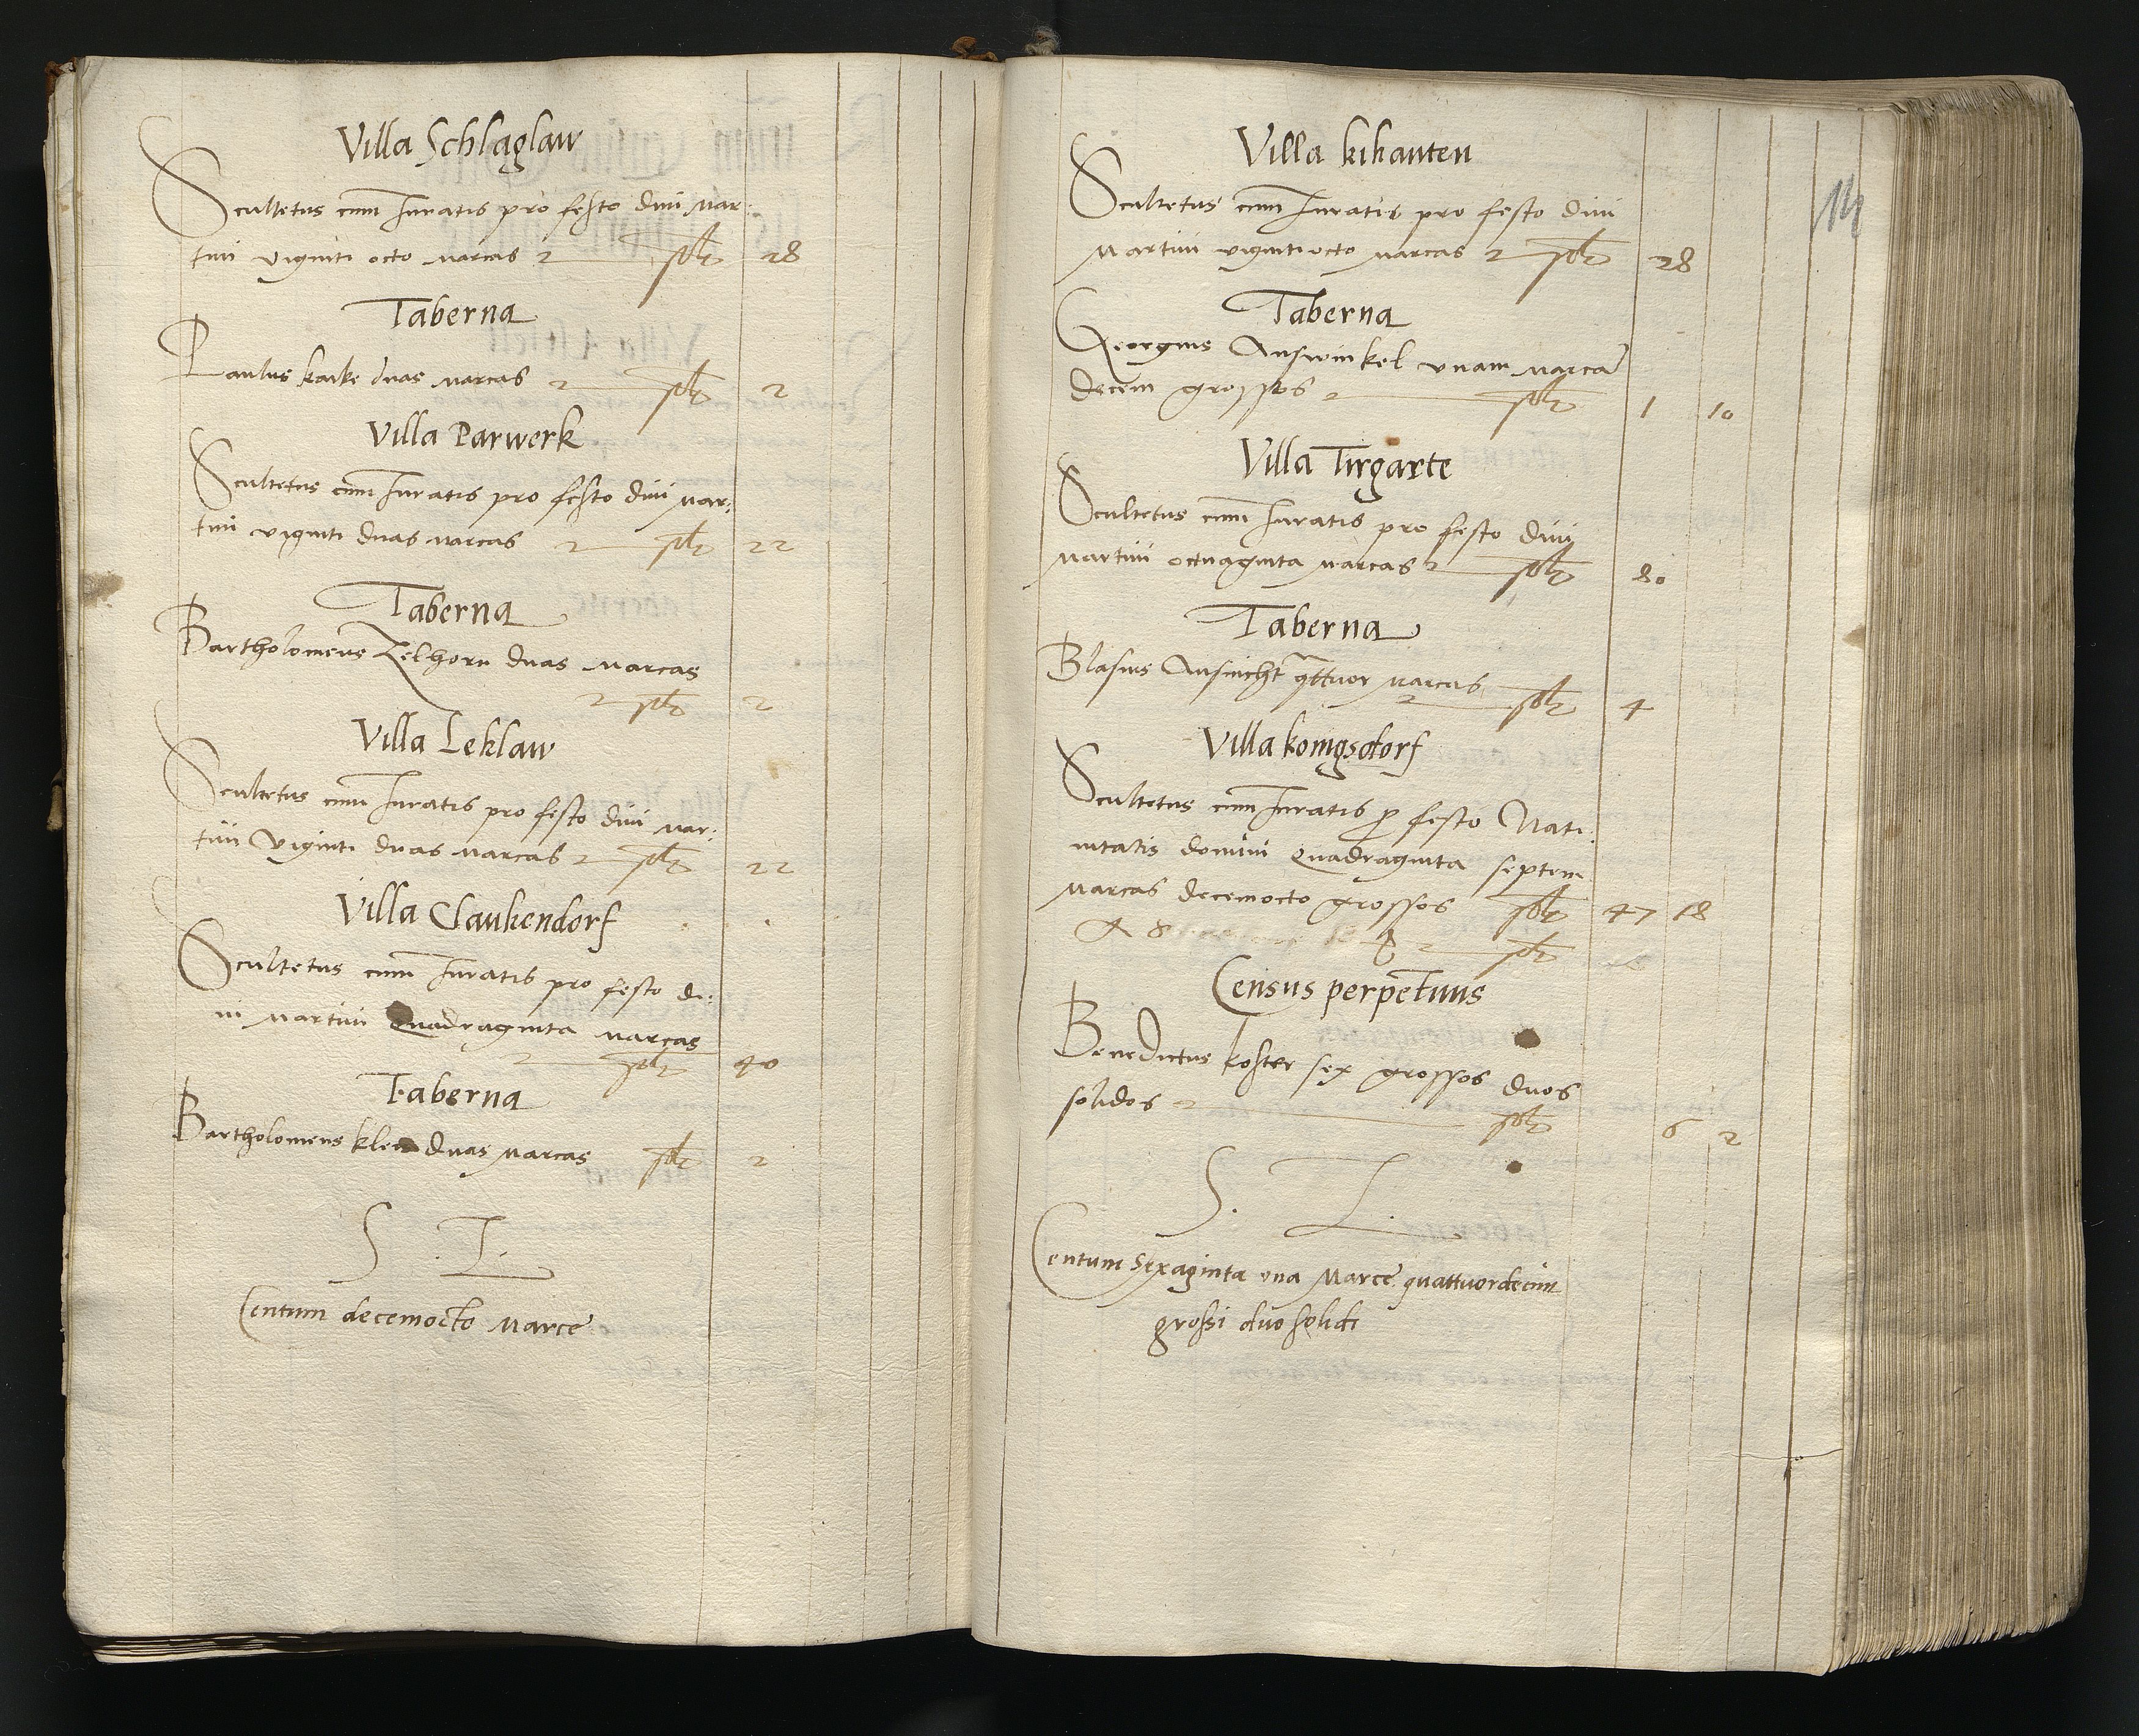 Villa Schlaglaw
Scultetus cum Juratis pro festo divi Mar:
tini viginti octo marcas solt 28
Taberna
Paulus kaike duas marcas solt 2
Villa Parwerk
Scultetus cum Juratis pro festo divi Mar:
tini viginti duas marcas solt 22
Taberna
Bartholomeus Zelhorn duas marcas
solt 2
Villa Leklaw
Scultetus cum Juratis pro festo divi Mar:
tini Viginti duas marcas solt 22
Villa Claukendorf
Scultetus cum Juratis pro festo di:
vi Martini Quadraginta marcas
solt 40
Taberna
Bartholomeus duas marcas solt 2
S. L.
Centum decemocto Marce
Villa kikauten
Scultetus cum Juratis pro festo divi
Martini vigintiocto marcas solt 28
Taberna
Georgius Answinkel unam marcā
decem grossos solt 1 10
Villa Tirgarte
Scultetus cum Juratis pro festo divi
Martini octuaginta marcas solt 80
Taberna
Blasius Ansicht qttuor marcas solt 4
Villa konigsdorf
Scultetus cum Juratis p festo Nati:
vitatis domini Quadraginta septem
marcas decemocto grossos solt 47 18
solt
Census perpetuus
Benedictus koster sex grossos duos
solidos solt 6 2
S. L.
Centum Sexaginta una Marce quattuordecim
grossi duo solidi